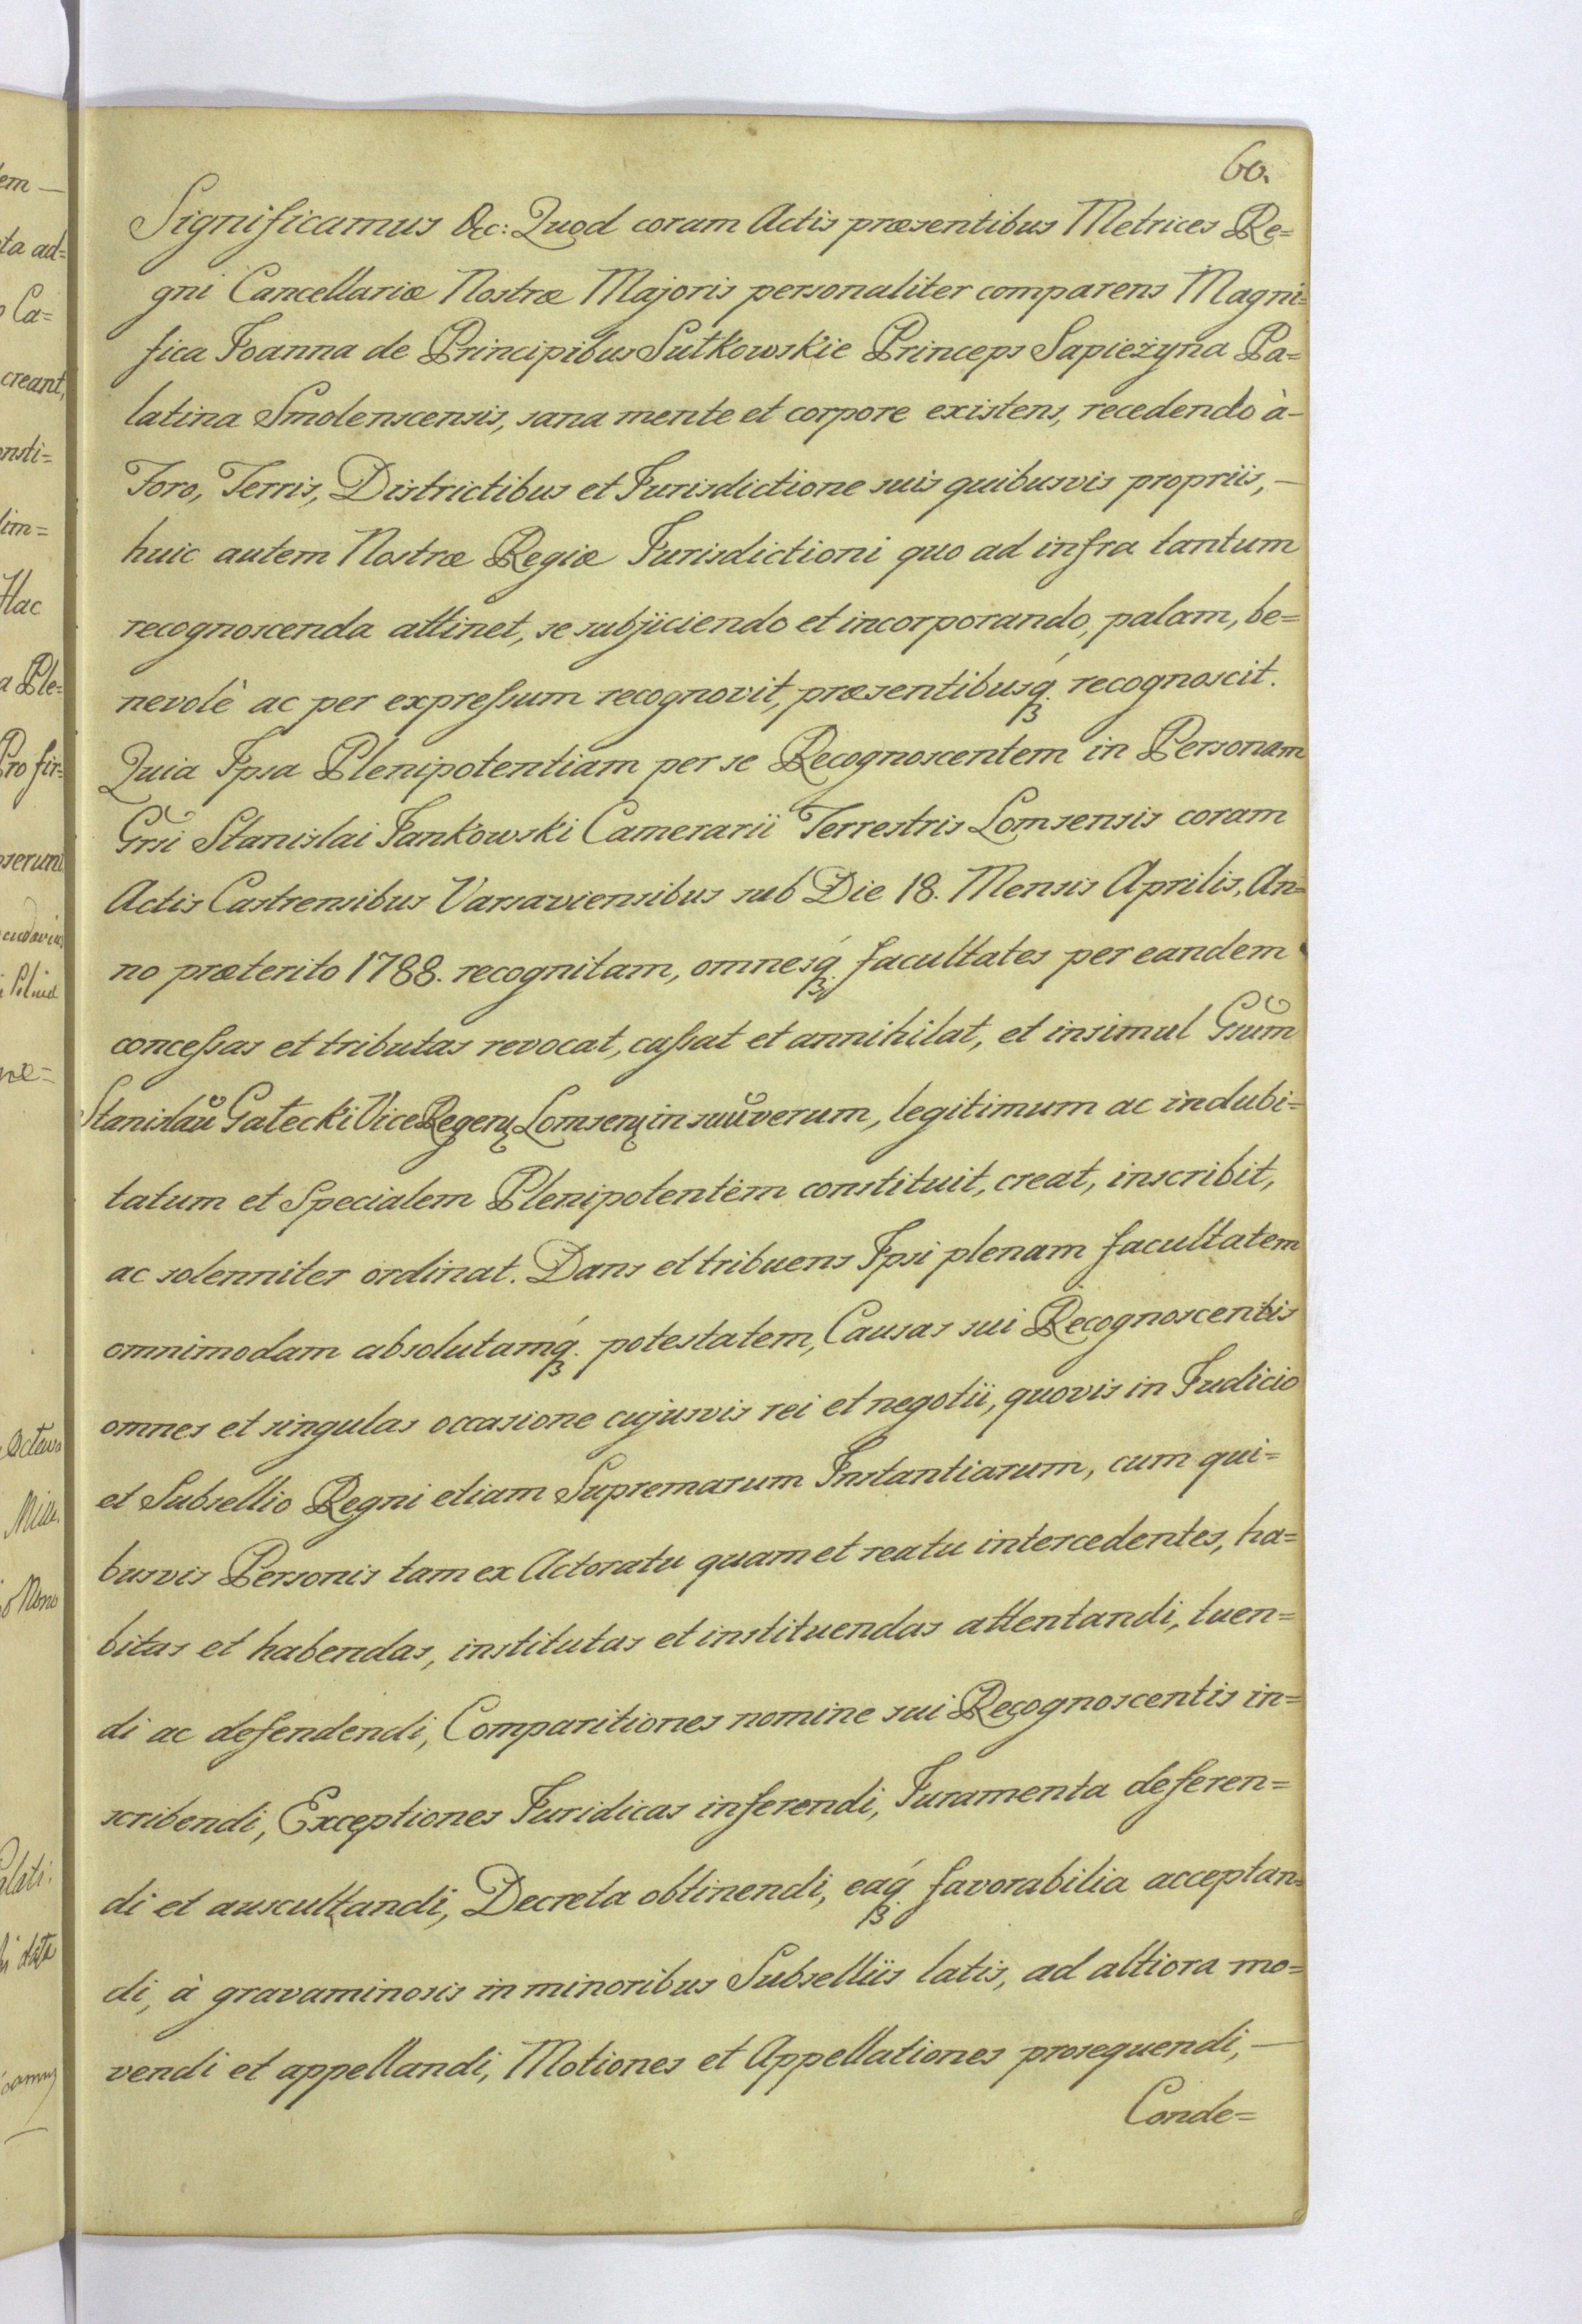 60.
Significamus &c: Quod coram Actis præsentibus Metrices Re=
gni Cancellariæ Nostræ Majoris personaliter comparens Magni=
fica Joanna de Principibus Sułkowskie Princeps Sapieżyna Pa=
latina Smolenscensis, sana mente et corpore existens, recedendo à-
Foro, Terris, Districtibus et Jurisdictione suis quibusvis propriis,-
huic autem Nostræ Regiæ Jurisdictioni quo ad infra tantum
recognoscenda attinet, se subjiciendo et incorporando, palam, be=
nevolè ac per expreſsum recognovit, præsentibusq́; recognoscit.
Quia Ipsa Plenipotentiam per se Recognoscentem in Personam
Grsi Stanislai Jankowski Camerarii Terrestris Lomsensis coram
Actis Castrensibus Varsaviensibus sub Die 18. Mensis Aprilis, An=
no præterito 1788. recognitam, omnesq́; facultates per eandem
conceſsas et tributas revocat, caſsat et annihilat, et insimul Gsum̃
Stanislaũ Gałecki Vice Regenꝫ Lomsenꝫ in suũ verum, legitimum ac indubi=
tatum et Specialem Plenipotentem constituit, creat, inscribit,
ac solenniter ordinat. Dans et tribuens Ipsi plenam facultatem
omnimodam absolutamq́; potestatem, Causas sui Recognoscentis
omnes et singulas occasione cujusvis rei et negotii, quovis in Judicio
et Subsellio Regni etiam Supremarum Instantiarum, cum qui=
busvis Personis tam ex Actoratu quam et reatu intercedentes, ha=
bitas et habendas, institutas et instituendas attentandi, tuen=
di ac defendendi, Comparitiones nomine sui Recognoscentis in=
scribendi, Exceptiones Juridicas inferendi, Juramenta deferen=
di et auscultandi, Decreta obtinendi, eaq́; favorabilia acceptan=
di, à gravaminosis in minoribus Subselliis latis, ad altiora mo=
vendi et appellandi, Motiones et Appellationes prosequendi,-
Conde=